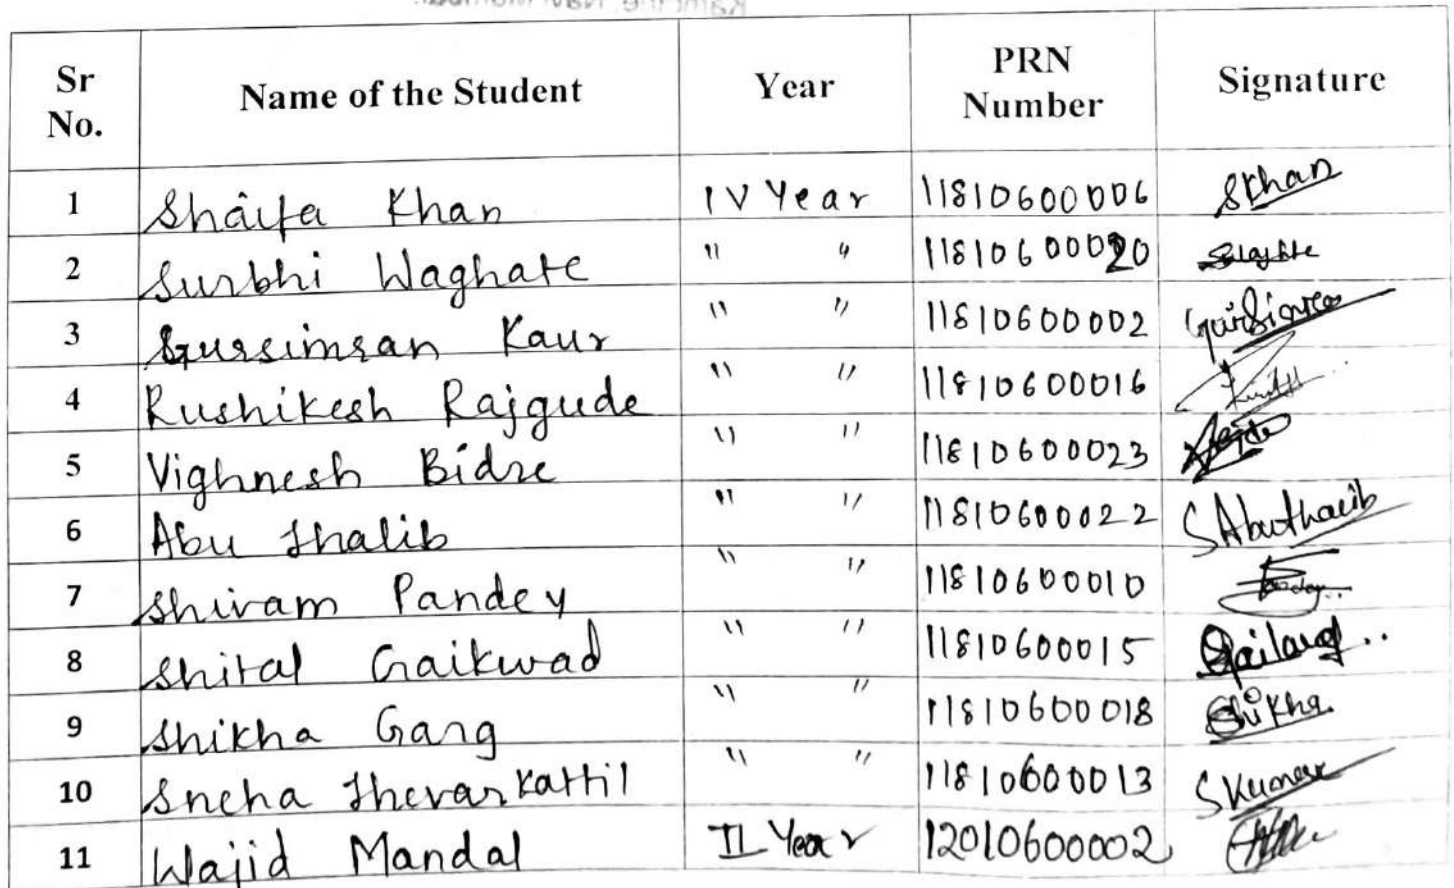 Sr No. Name of the Student Year PRN Number Signature
1 Shaifa Khan IV Year 11810600006 SKhan
2 Surbhi Waghate " " 11810600020
3 Gursimran Kaur " " 11810600002
4 Rushikesh Rajgude " " 11810600016
5 Vighnesh Bidre " " 11810600023
6 Abu Thalib " " 11810600022 SAbuthalib
7 Shivam Pandey " " 11810600010
8 Shital Gaikwad " " 11810600015
9 Shikha Garg " " 11810600018 Shikha
10 Sneha Thevarkattil " " 11810600013 SKumar
11 Wajid Mandal II Year 12010600002